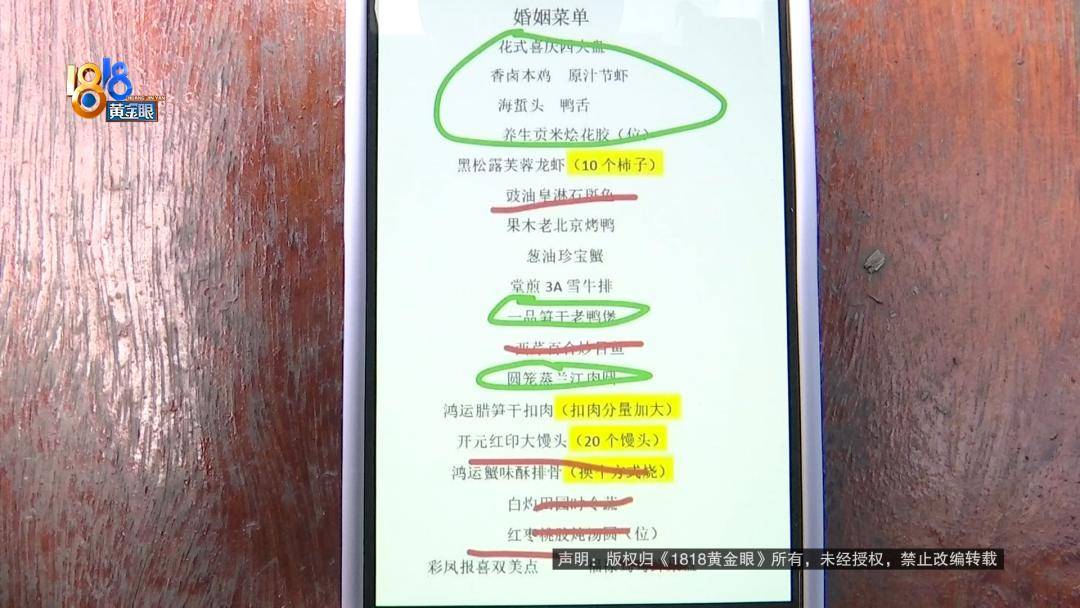 婚姻菜单
花式喜庆四大盘
香卤本鸡 原汁节虾
海蜇头 鸭舌
养生贡米烩花胶（位）
黑松露芙蓉龙虾（10个柿子）
豉油皇淋石斑鱼
果木老北京烤鸭
葱油珍宝蟹
堂煎3A雪牛排
一品笋干老鸭煲
圆笼蒸兰江肉圆
鸿运腊笋干扣肉（扣肉分量加大）
开元红印大馒头（20个馒头）
鸿运蟹味酥排骨（换个方式烧）
白灼田园时令蔬
红枣桃胶炖汤圆（位）
彩凤报喜双美点
1818
黄金眼
声明：版权归《1818黄金眼》所有，未经授权，禁止改编转载